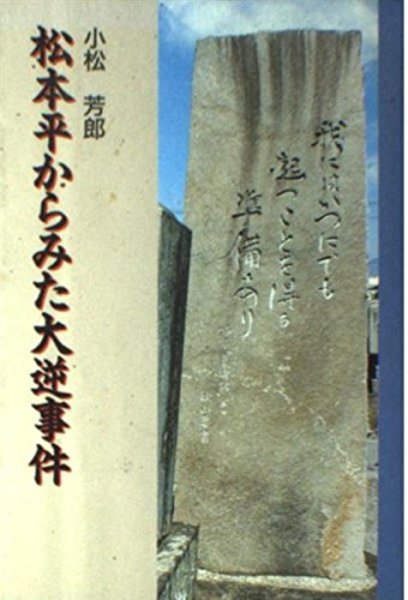 小松 芳郎
松本平からみた大逆事件
我にはいつにても
起つことを得る
準備あり